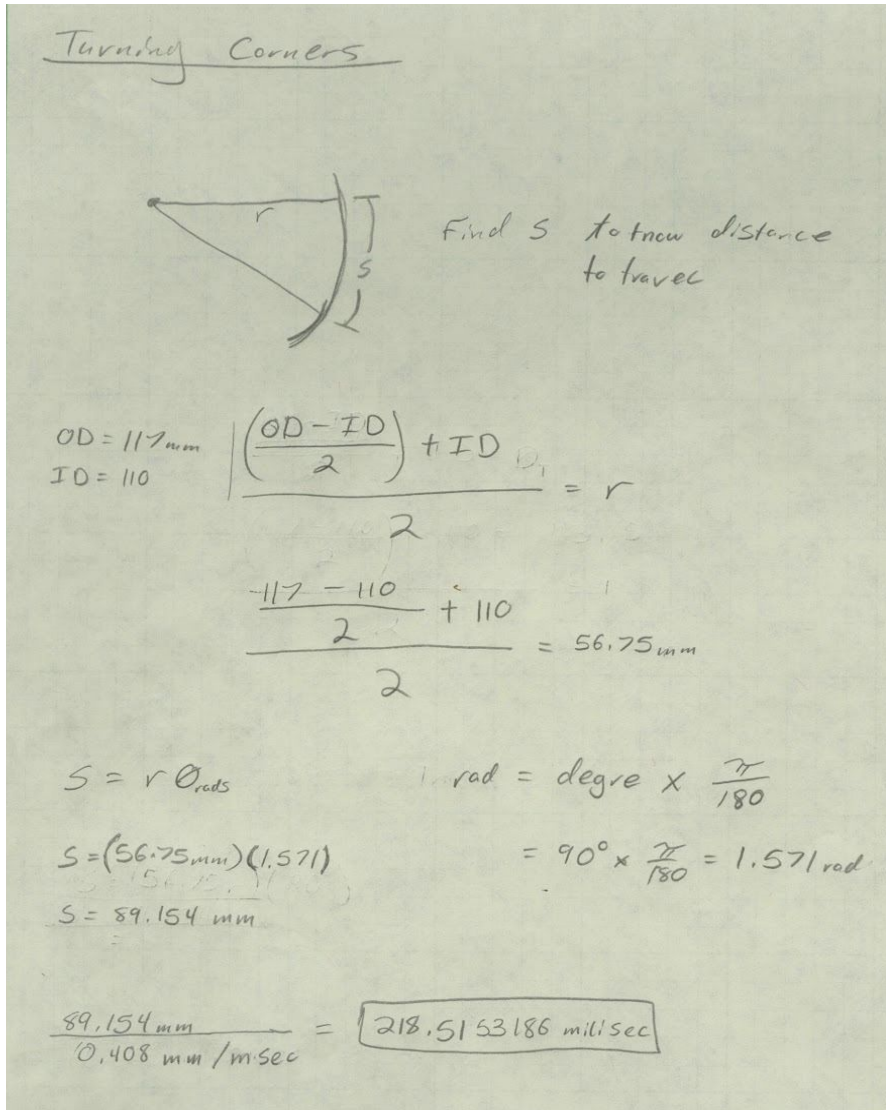 Turning Corners
r
S
Find S to know distance
to travel
OD = 117mm
ID = 110
((OD - ID)/2) + ID
2
= r
117 - 110
2
+ 110
2
= 56.75mm
S = r θrads
rad = degre × π/180
S = (56.75mm)(1.571)
= 90° × π/180 = 1.571 rad
S = 89.154 mm
89.154 mm
0.408 mm/msec
= 218.5153186 milisec